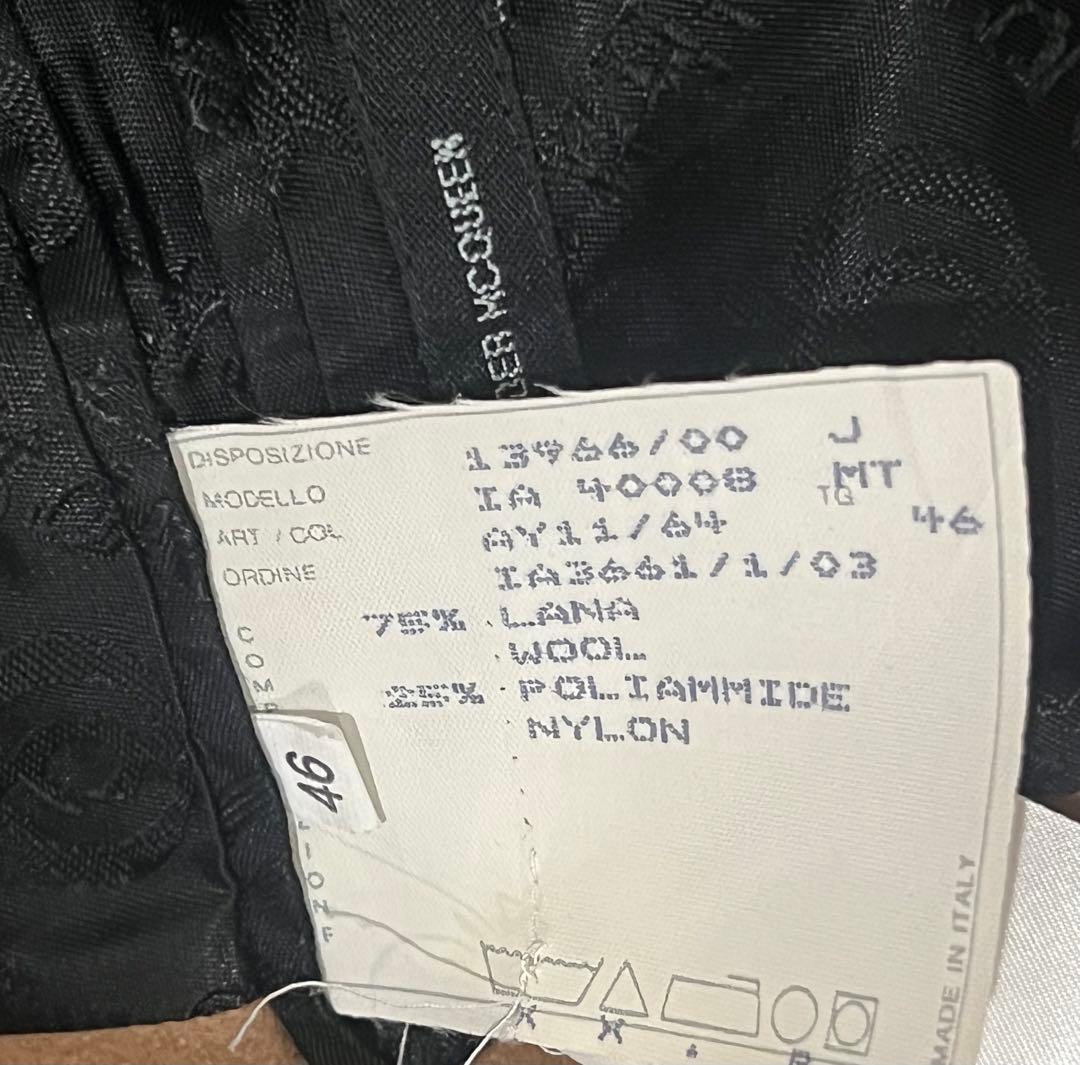 MCQUEEN
DISPOSIZIONE 13966/00 J
MODELLO IA 40008 MT
TG 46
ART / COL AY11/64
ORDINE IA3661/1/03
75% LANA
WOOL
25% POLIAMMIDE
NYLON
46
MADE IN ITALY